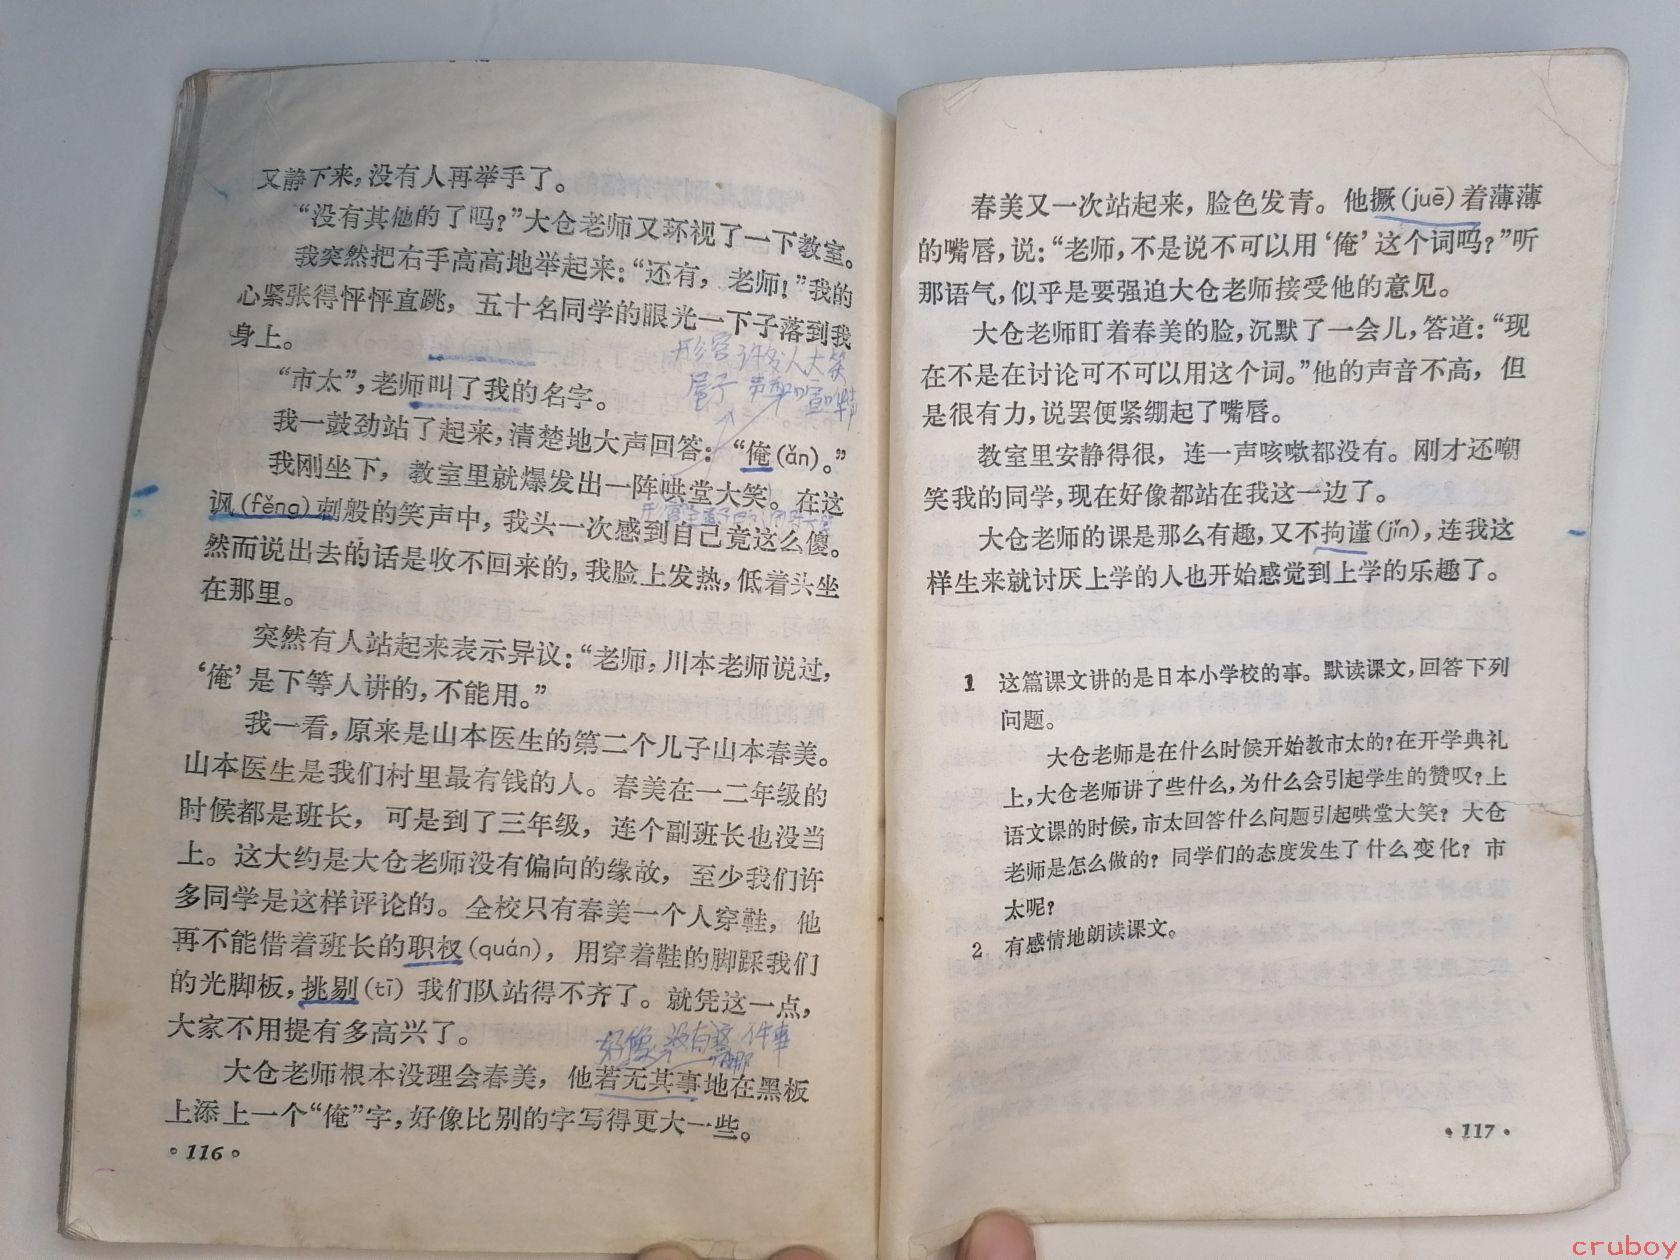 又静下来，没有人再举手了。
“没有其他的了吗？”大仓老师又环视了一下教室。
我突然把右手高高地举起来：“还有，老师！”我的
心紧张得怦怦直跳，五十名同学的眼光一下子落到我
身上。
形容许多人大笑
“市太”，老师叫了我的名字。
屋子 声和喧哗
我一鼓劲站了起来，清楚地大声回答：“俺(ǎn)。”
我刚坐下，教室里就爆发出一阵哄堂大笑。在这
讽(fěng)刺般的笑声中，我头一次感到自己竟这么傻。
然而说出去的话是收不回来的，我脸上发热，低着头坐
在那里。
突然有人站起来表示异议：“老师，川本老师说过，
‘俺’是下等人讲的，不能用。”
我一看，原来是山本医生的第二个儿子山本春美。
山本医生是我们村里最有钱的人。春美在一二年级的
时候都是班长，可是到了三年级，连个副班长也没当
上。这大约是大仓老师没有偏向的缘故，至少我们许
多同学是这样评论的。全校只有春美一个人穿鞋，他
再不能借着班长的职权(quán)，用穿着鞋的脚踩我们
的光脚板，挑剔(tī)我们队站得不齐了。就凭这一点，
大家不用提有多高兴了。
好像没有那件事
大仓老师根本没理会春美，他若无其事地在黑板
上添上一个“俺”字，好像比别的字写得更大一些。
·116·
春美又一次站起来，脸色发青。他撅(juē)着薄薄
的嘴唇，说：“老师，不是说不可以用‘俺’这个词吗？”听
那语气，似乎是要强迫大仓老师接受他的意见。
大仓老师盯着春美的脸，沉默了一会儿，答道：“现
在不是在讨论可不可以用这个词。”他的声音不高，但
是很有力，说罢便紧绷起了嘴唇。
教室里安静得很，连一声咳嗽都没有。刚才还嘲
笑我的同学，现在好像都站在我这一边了。
大仓老师的课是那么有趣，又不拘谨(jǐn)，连我这
样生来就讨厌上学的人也开始感觉到上学的乐趣了。
1 这篇课文讲的是日本小学校的事。默读课文，回答下列
问题。
大仓老师是在什么时候开始教市太的？在开学典礼
上，大仓老师讲了些什么，为什么会引起学生的赞叹？上
语文课的时候，市太回答什么问题引起哄堂大笑？大仓
老师是怎么做的？同学们的态度发生了什么变化？市
太呢？
2 有感情地朗读课文。
·117·
cruboy